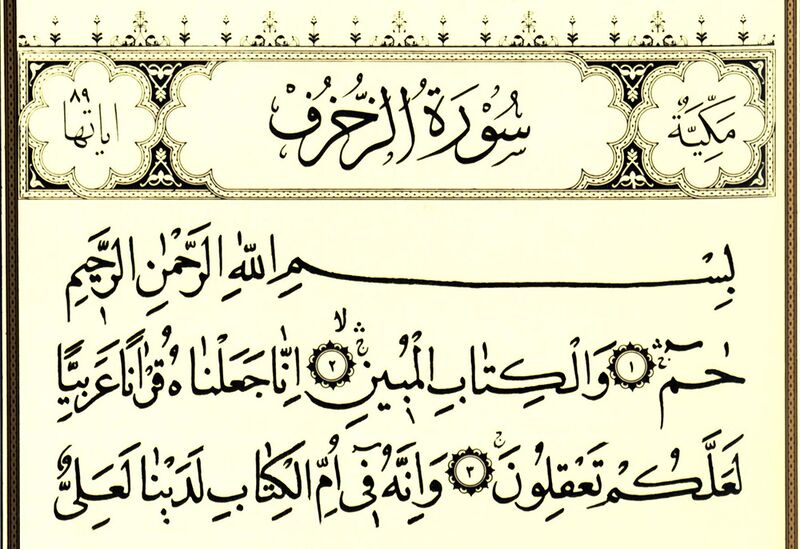 مَكِّيَّةٌ سُورَةُ الزُّخْرُفِ اياتها ٨٩
بِسْمِ اللّٰهِ الرَّحْمٰنِ الرَّحٖيمِ
حٰمٓ ۚ ﴿١﴾ وَالْكِتَابِ الْمُبٖينِ ۙ ﴿٢﴾ اِنَّا جَعَلْنَاهُ قُرْاٰنًا عَرَبِيًّا
لَعَلَّكُمْ تَعْقِلُونَ ۚ ﴿٣﴾ وَاِنَّهُ فٖٓى اُمِّ الْكِتَابِ لَدَيْنَا لَعَلِىٌّ